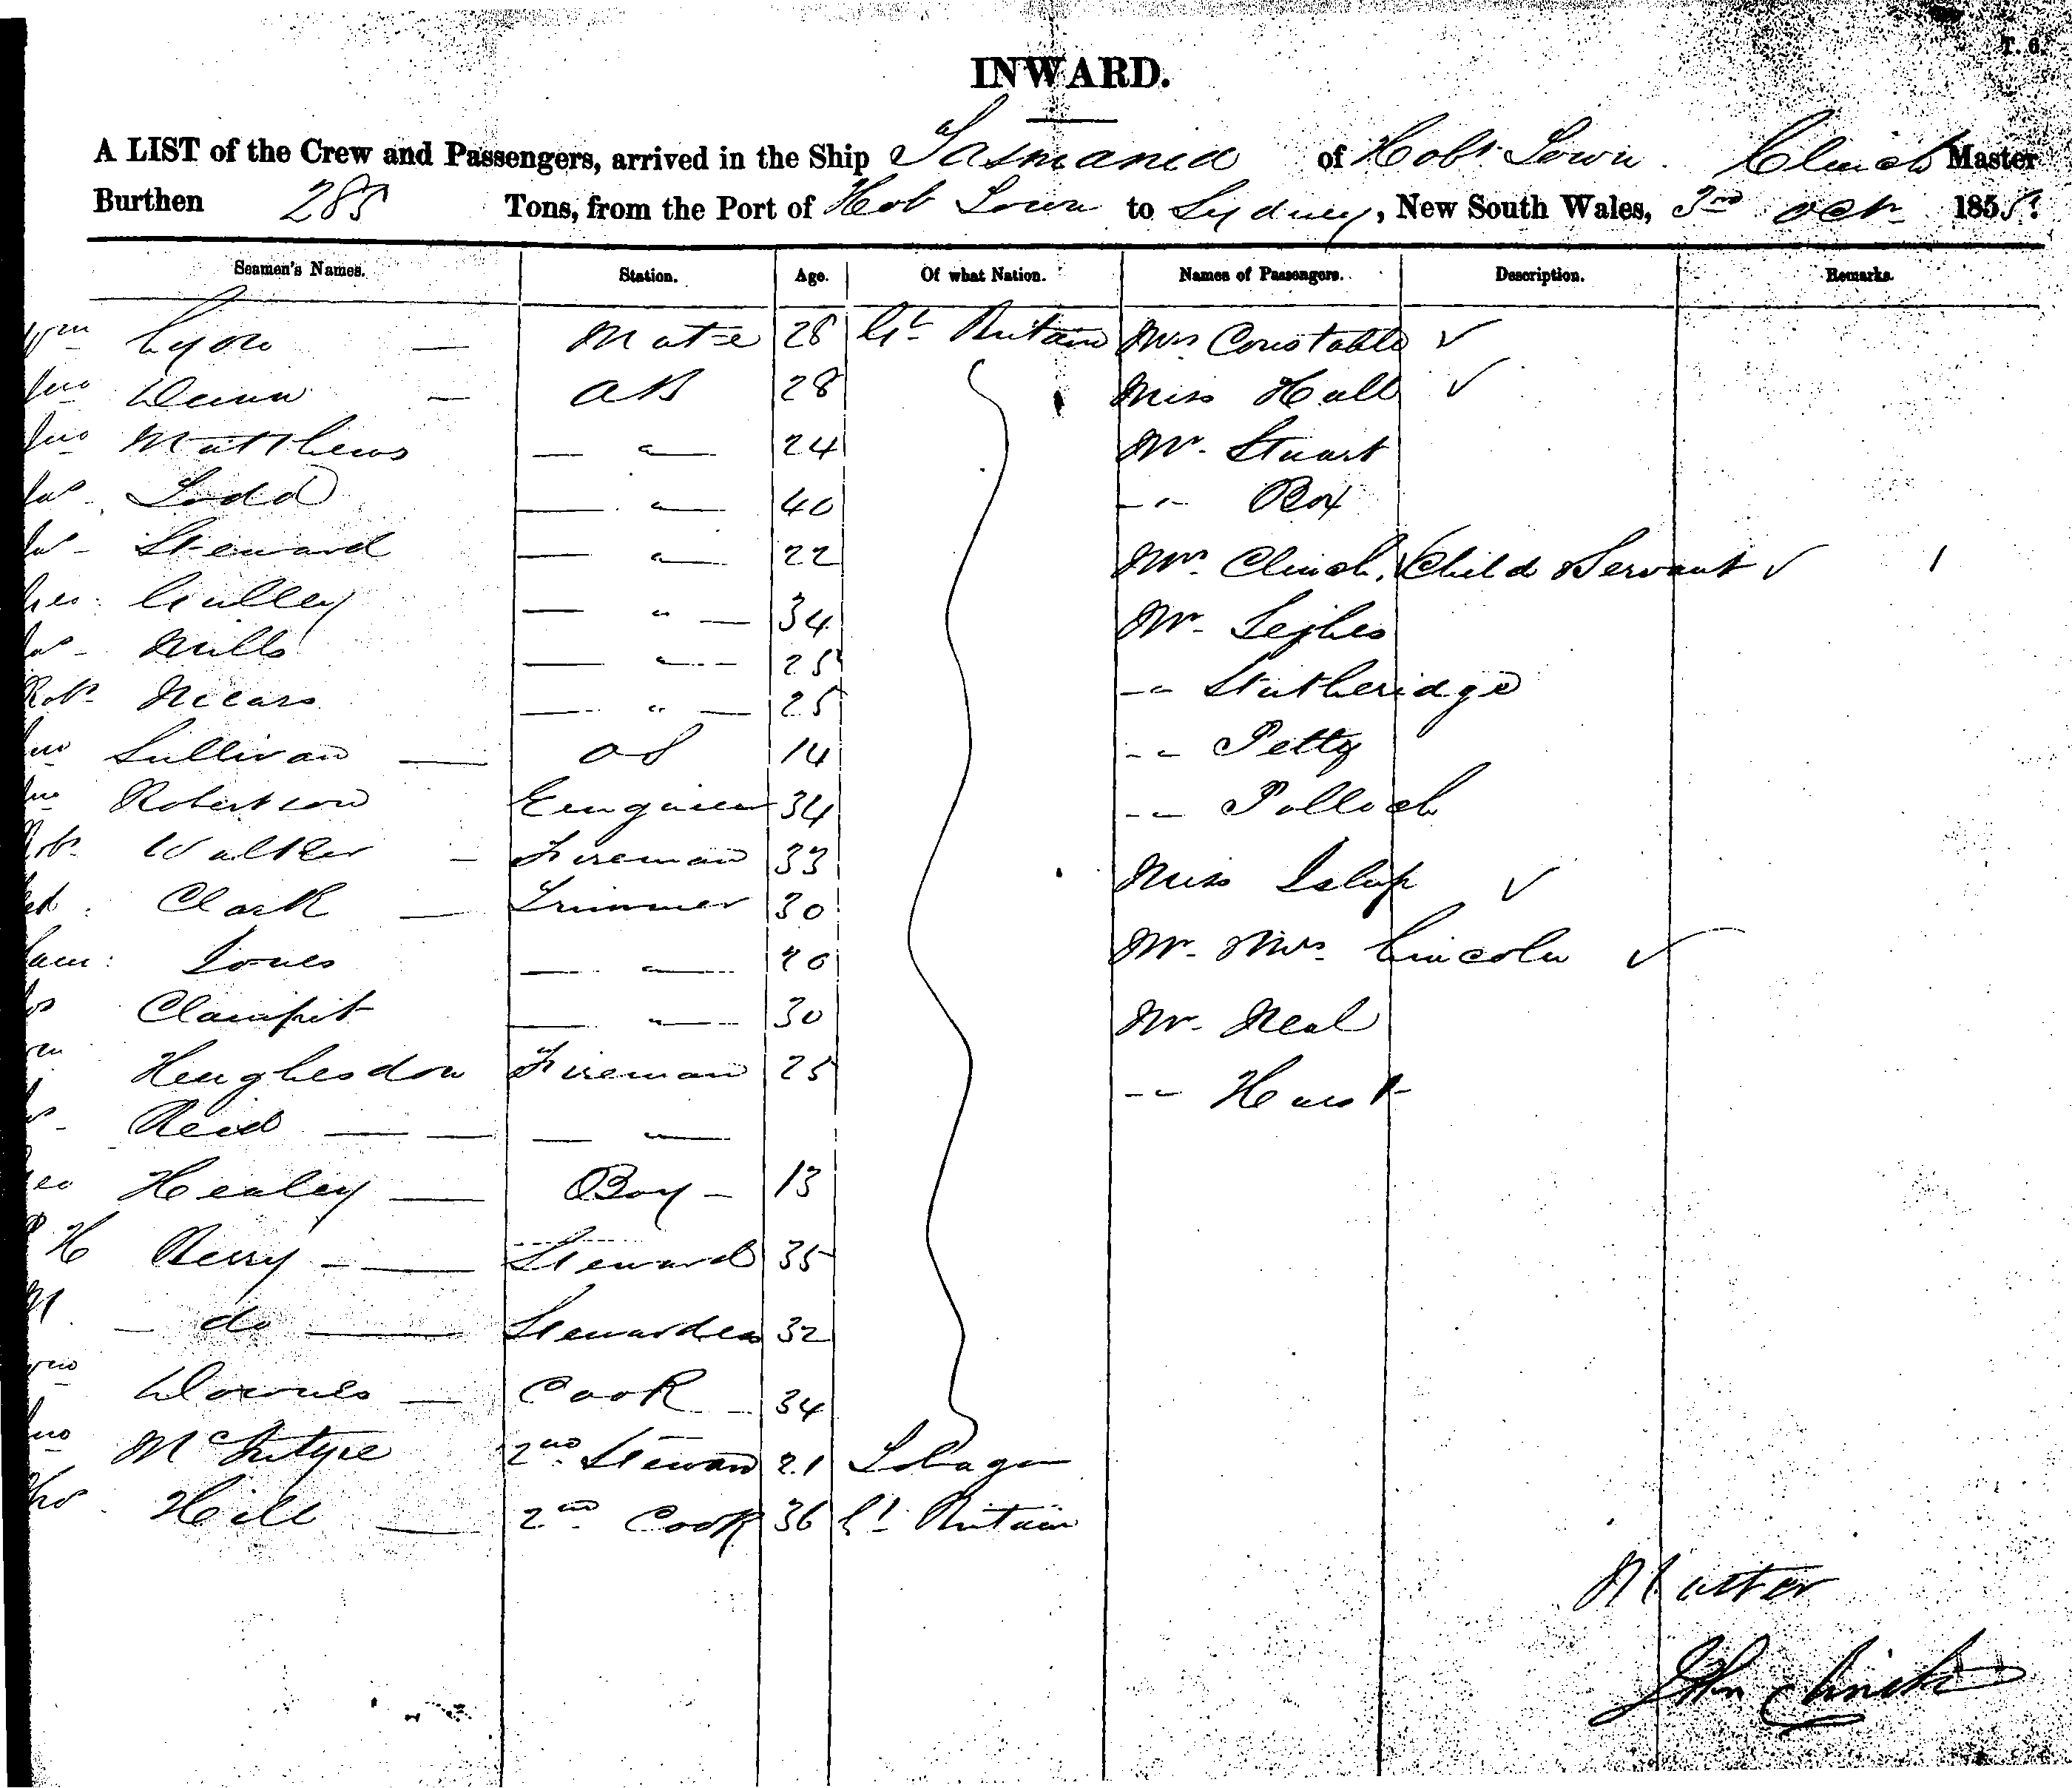 T. 6.
INWARD.
A LIST of the Crew and Passengers, arrived in the Ship Tasmania of Hobt Town. Clinch Master
Burthen 285 Tons, from the Port of Hob Town to Sydney, New South Wales, 3rd Octr 1855.
Seamen's Names. Station. Age. Of what Nation. Names of Passengers. Description. Remarks.
Wm Lyon — Mate 28 Gt Britain Mrs Constable ✓
Jno Dunn — AB 28 Miss Hall ✓
Jno Matthews — " — 24 Mr. Stuart
Jas. Todd — " — 40 — " Box
Jas - Steward — " — 22 Mrs Clinch, Child & Servant ✓ 1
Gulley — " — 34 Mr.
Jas - Mills — " — 25 — " Stutheridge
Robt Mears — " — 25 — " Petty
Jno Sullivan — OS 14 — " Pollock
Jno Robertson Engineer 34 Miss Islip ✓
Robt Walker — Fireman 33 Mr. & Mrs. Lincoln ✓
Clark — Trimmer 30 Mr. Neal
Sam: Jones — " — 20 — " Hurst
Clampit — " — 30
Wm Hughesdon Fireman 25
Reid — — — " —
Geo Healey — Boy - 13
H Berry — Steward 35
M — do — Stewardess 32
Downes — Cook 34
Jno McIntyre 2nd Steward 21 Tobago
Thos Hill — 2nd Cook 36 Gt Britain
Master
John Clinch